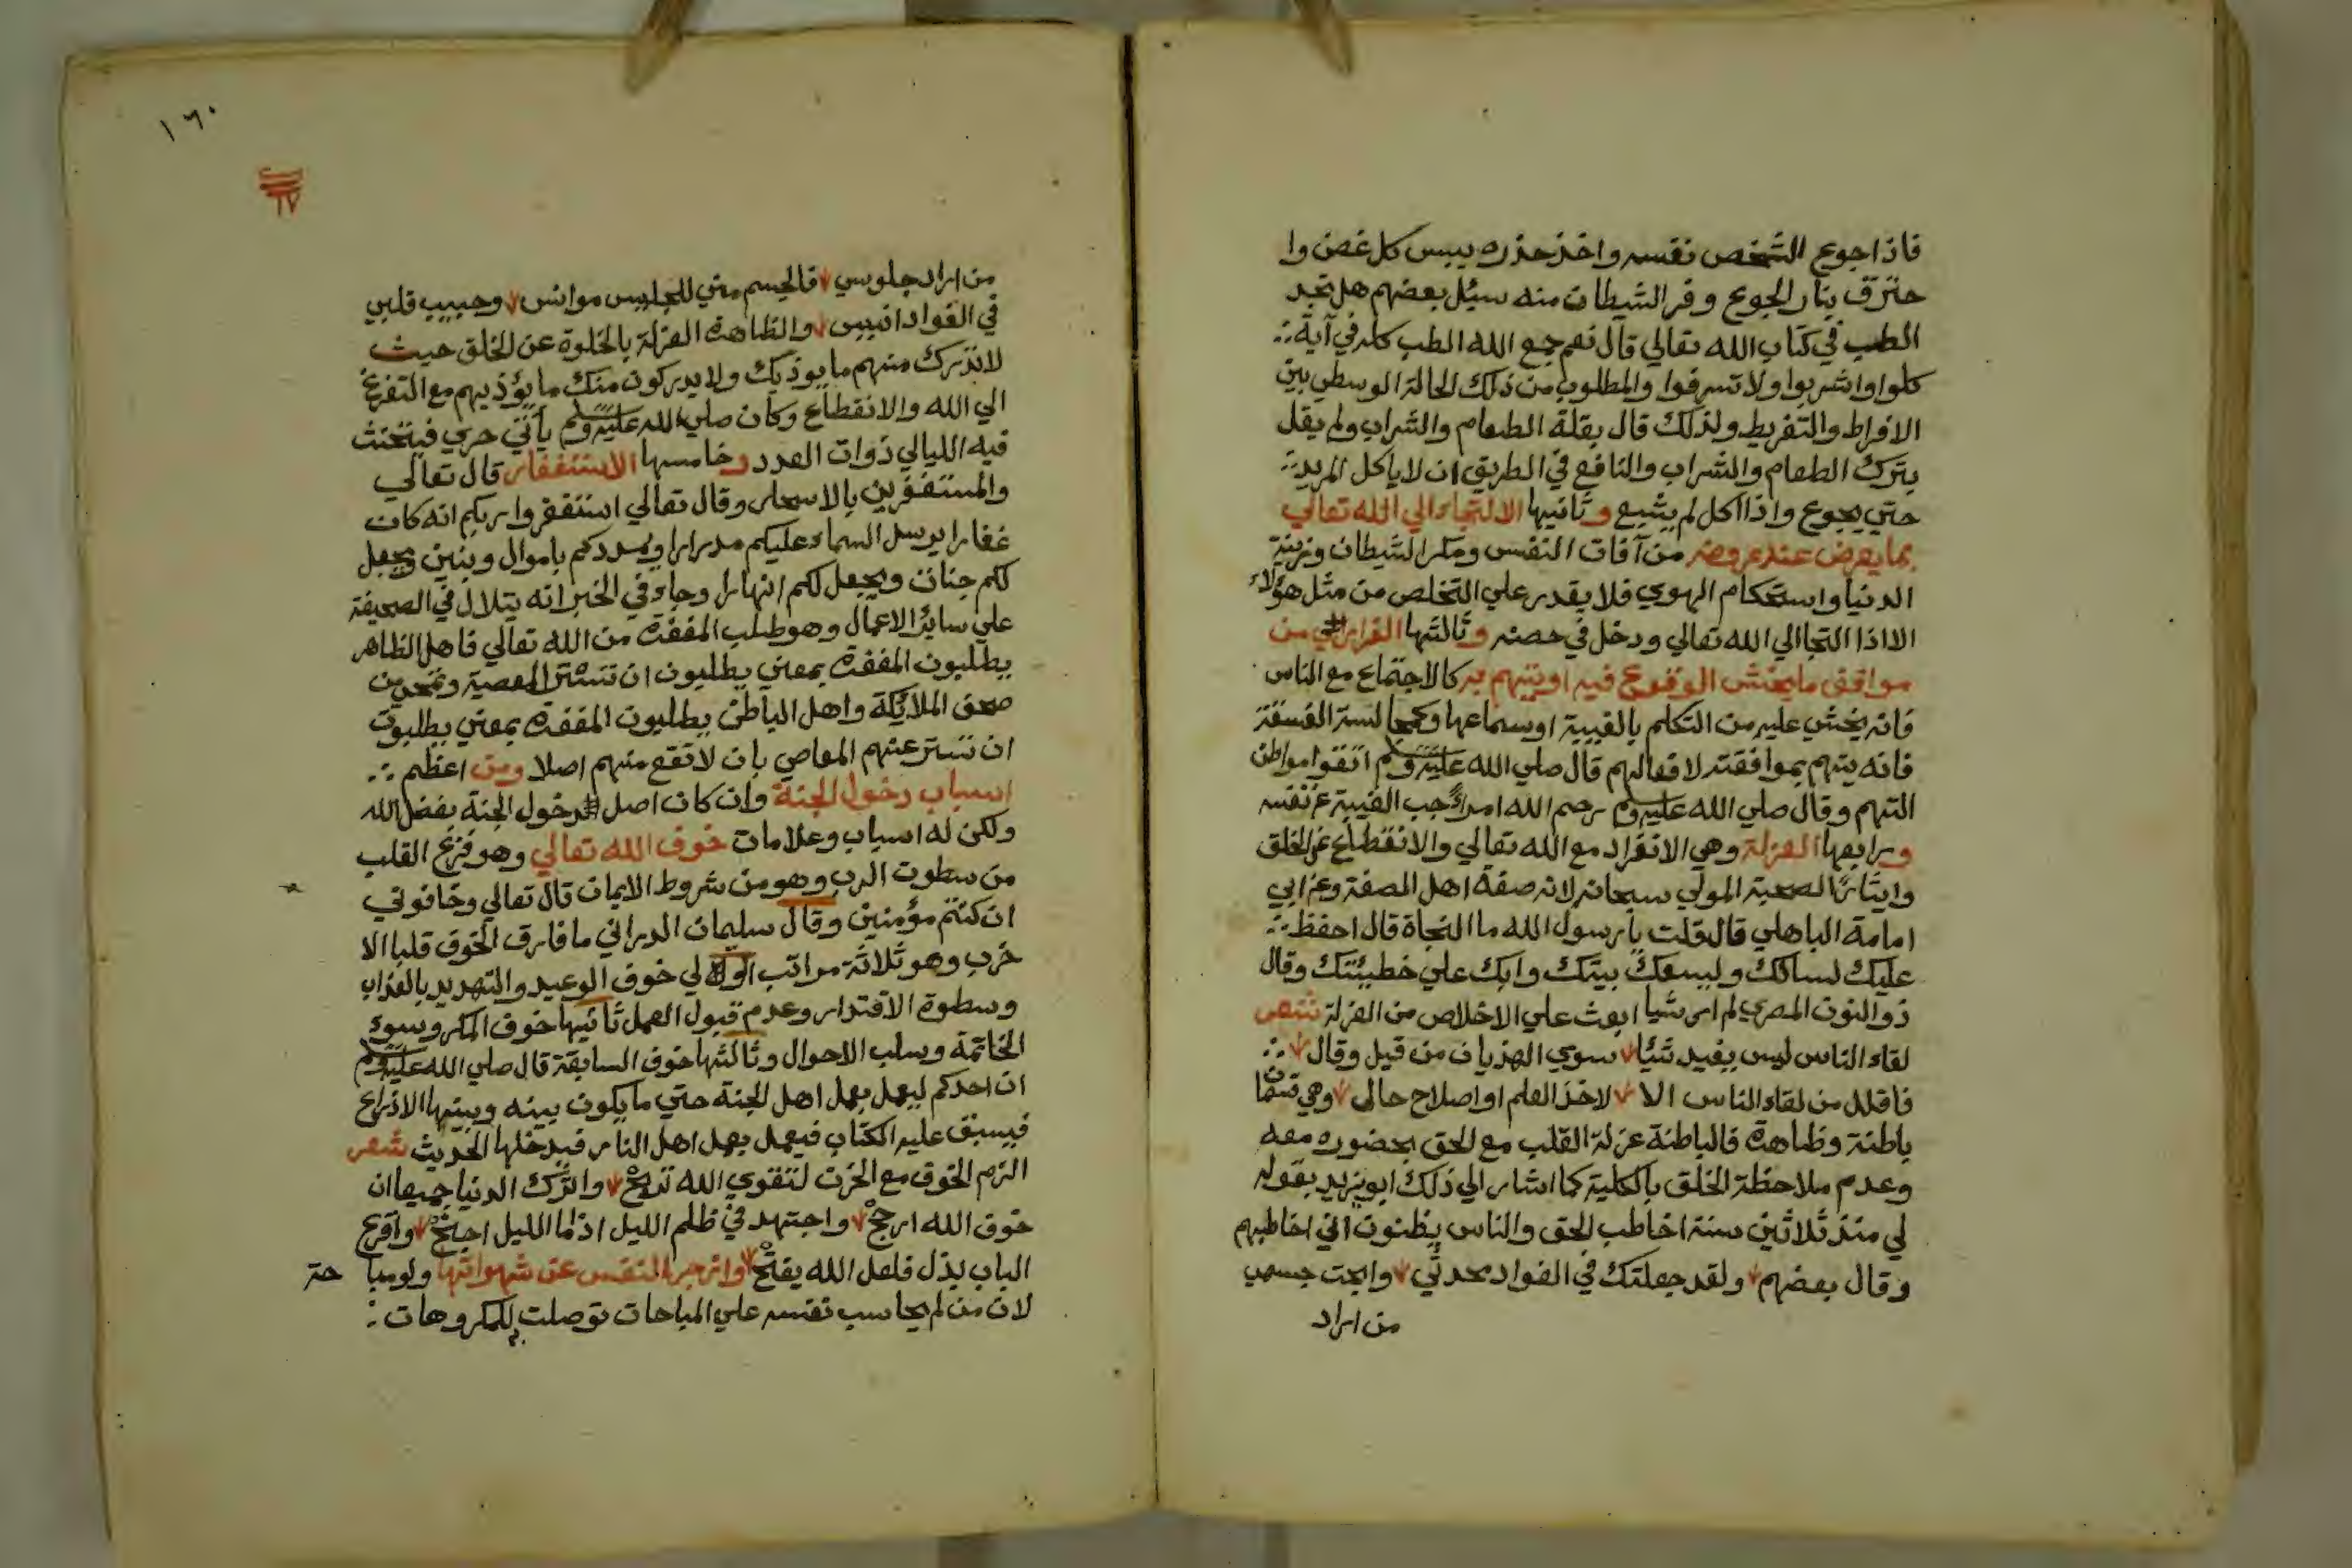 فاذا جوع الشخص نفسه واخذ حذره يبس كل غصن وا
حترق بنار الجوع وفر الشيطان منه سيئل بعضهم هل تجد
الطب في كتاب الله تعالي قال نعم جمع الله الطب كله في آية
كلوا واشربوا ولا تسرفوا والمطلوب من ذلك الحالة الوسطي بين
الافراط والتفريط ولذلك قال بقلة الطعام والشراب ولم يقل
بترك الطعام والشراب والنافع في الطريق ان لا ياكل المريد
حتي يجوع واذا اكل لم يشبع وثانيها الالتجاء الي الله تعالي
بما يعرض عند عروضه من آفات النفس ومكر الشيطان وزينة
الدنيا واستحكام الهوي فلا يقدر علي التخلص من مثل هؤلاء
الا اذا التجا الي الله تعالي ودخل في حصنه وثالثها الفرار من
مواقع ما يخش الوقوع فيه او يتهم به كالاجتماع مع الناس
فانه يخشي عليه من التكلم بالغيبة او سماعها وكمجالسة الفسقة
فانه يتهم بموافقته لافعالهم قال صلي الله عليه وسلم اتقوا مواطن
التهم وقال صلي الله عليه وسلم رحم الله امرءً جب الغيبة عن نفسه
ورابعها العزلة وهي الانفراد مع الله تعالي والانقطاع عن الخلق
وايثارًا لصحبة المولي سبحانه لانه صفة اهل الصفة وعن ابي
امامة الباهلي قال قلت يا رسول الله ما النجاة قال احفظ
عليك لسانك وليسعك بيتك وابك علي خطيئتك وقال
ذو النون المصري لم ار شيا ابعث علي الاخلاص من العزلة شعر
لقاء الناس ليس يفيد شئا سوي الهذيان من قيل وقال
فاقلل من لقاء الناس الا لاخذ العلم او اصلاح حالي وهي قسمان
باطنة وظاهة فالباطنة عزلة القلب مع الحق بحضوره معه
وعدم ملاحظة الخلق بالكلية كما اشار الي ذلك ابو يزيد بقوله
لي منذ ثلاثين سنة اخاطب الحق والناس يظنون اني اخاطبهم
وقال بعضهم ولقد جعلتك في الفواد محدثي وابحت جسمي
من اراد
١٦٠
من اراد جلوسي فالجسم مني للجليس موانس وحبيب قلبي
في الفواد انيس والظاهة العزلة بالخلوة عن الخلق حيث
لا تدرك منهم ما يوذيك ولا يدركون منك ما يؤذيهم مع التفرغ
الي الله والانقطاع وكان صلي الله عليه وسلم يأتي حري فيتحنث
فيه الليالي ذوات العدد وخامسها الاستغفار قال تعالي
والمستغفرين بالاسحار وقال تعالي استغفروا ربكم انه كان
غفارا يرسل السماء عليكم مدرارا ويمددكم باموال وبنين ويجعل
لكم جنات ويجعل لكم انهارا وجاء في الخبر انه يتلال في الصحيفة
علي ساير الاعمال وهو طلب المغفة من الله تعالي فاهل الظاهر
يطلبون المغفة بمعني يطلبون ان تستر المعصية وتمحي من
صحف الملائكة واهل الباطن يطلبون المغفة بمعني يطلبون
ان تستر عنهم المعاصي بان لا تقع منهم اصلا ومن اعظم
اسباب دخول الجنة وان كان اصل دخول الجنة بفضل الله
ولكن له اسباب وعلامات خوف الله تعالي وهو فزع القلب
من سطوت الرب وهو من شروط الايمان قال تعالي وخافوني
ان كنتم مؤمنين وقال سليمان الدراني ما فارق الخوف قلبا الا
خرب وهو ثلاثة مراتب الاولي خوف الوعيد والتهديد بالعذاب
وسطوة الاقتدار وعدم قبول العمل ثانيها خوف المكر وسوء
الخاتمة وسلب الاحوال وثالثها خوف السابقة قال صلي الله عليه وسلم
ان احدكم ليعمل بعمل اهل الجنة حتي ما يكون بينه وبينها الا ذراع
فيسبق عليه الكتاب فيعمل بعمل اهل النار فيدخلها الحديث شعر
الزم الخوف مع الحزن لتقوي الله تربح واترك الدنيا جميعا ان
خوف الله ارجح واجتهد في ظلم الليل اذا ما الليل اجنح واقرع
الباب بذل فلعل الله يفتح وازجر النفس عن شهواتها ولو مبا حة
لان من لم يحاسب نفسه علي المباحات توصلت للمكروهات